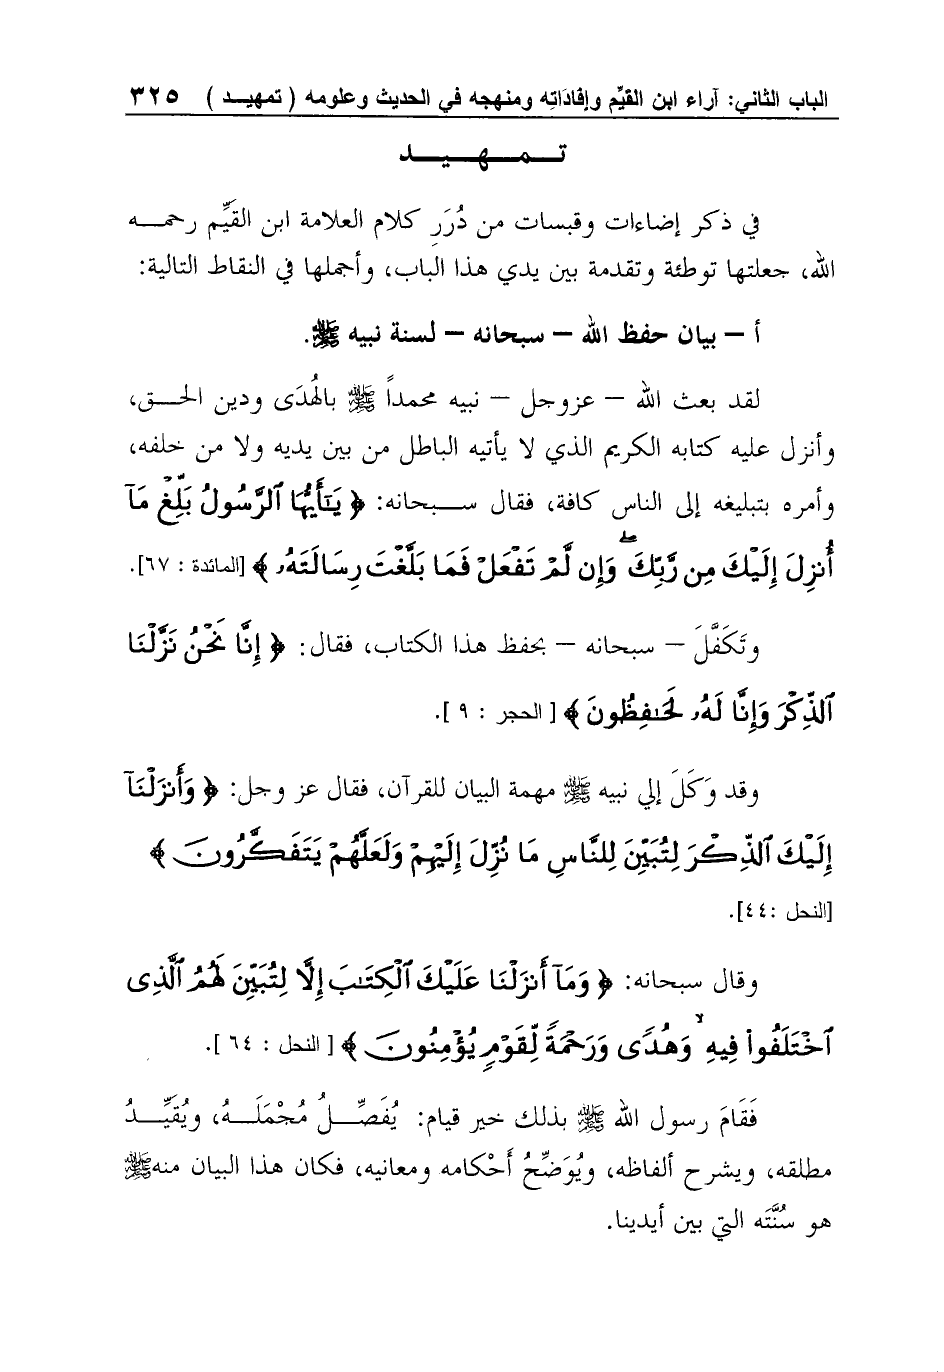 الباب الثاني: آراء ابن القيِّم وإفاداتِه ومنهجه في الحديث وعلومه ( تمهيــد ) ٣٢٥
تــمــهــيــد
في ذكر إضاءات وقبسات من دُرَرِ كلام العلامة ابن القيِّم رحمــه
الله، جعلتها توطئة وتقدمة بين يدي هذا الباب، وأجملها في النقاط التالية:
أ – بيان حفظ الله – سبحانه – لسنة نبيه ﷺ.
لقد بعث الله – عزوجل – نبيه محمداً ﷺ بالهُدَى ودين الحــق،
وأنزل عليه كتابه الكريم الذي لا يأتيه الباطل من بين يديه ولا من خلفه،
وأمره بتبليغه إلى الناس كافة، فقال ســبحانه: ﴿ يَـٰٓأَيُّهَا ٱلرَّسُولُ بَلِّغْ مَآ
أُنزِلَ إِلَيْكَ مِن رَّبِّكَ ۖ وَإِن لَّمْ تَفْعَلْ فَمَا بَلَّغْتَ رِسَالَتَهُۥ ﴾ [المائدة : ٦٧].
وتَكَفَّلَ – سبحانه – بحفظ هذا الكتاب، فقال: ﴿ إِنَّا نَحْنُ نَزَّلْنَا
ٱلذِّكْرَ وَإِنَّا لَهُۥ لَحَـٰفِظُونَ ﴾ [ الحجر : ٩ ].
وقد وَكَلَ إلي نبيه ﷺ مهمة البيان للقرآن، فقال عز وجل: ﴿ وَأَنزَلْنَآ
إِلَيْكَ ٱلذِّكْرَ لِتُبَيِّنَ لِلنَّاسِ مَا نُزِّلَ إِلَيْهِمْ وَلَعَلَّهُمْ يَتَفَكَّرُونَ ﴾
[النحل :٤٤].
وقال سبحانه: ﴿ وَمَآ أَنزَلْنَا عَلَيْكَ ٱلْكِتَـٰبَ إِلَّا لِتُبَيِّنَ لَهُمُ ٱلَّذِى
ٱخْتَلَفُوا۟ فِيهِ ۙ وَهُدًى وَرَحْمَةً لِّقَوْمٍ يُؤْمِنُونَ ﴾ [ النحل : ٦٤ ].
فَقَامَ رسول الله ﷺ بذلك خير قيام: يُفَصِّــلُ مُجْمَلَــهُ، ويُقَيِّــدُ
مطلقه، ويشرح ألفاظه، ويُوَضِّحُ أَحْكامه ومعانيه، فكان هذا البيان منهﷺ
هو سُنَّتَه التي بين أيدينا.